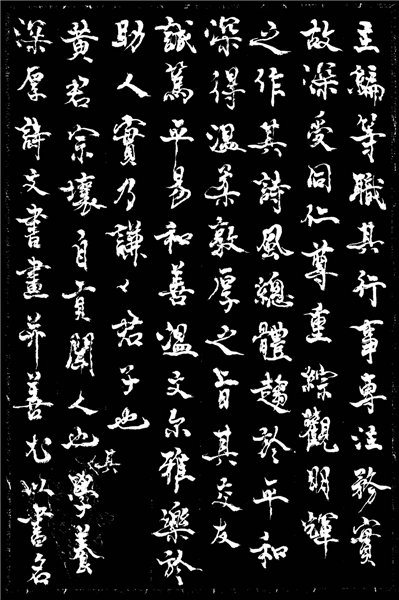 主編等職其行事專注務實
故深受同仁尊重綜觀明輝
之作其詩風總體趨於平和
深得溫柔敦厚之旨其交友
誠篤平易和善溫文尔雅樂於
助人實乃謙々君子也
黄君宗壤自貢聞人也其學養
深厚詩文書畫並善尤以書名